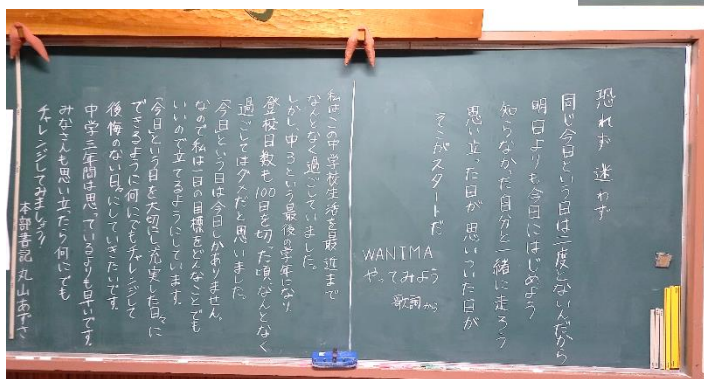 恐れず 迷わず
同じ今日という日は二度とないんだから
明日よりも今日にはじめよう
知らなかった自分と一緒に走ろう
思い立った日が 思いついた日が
そこがスタートだ
WANIMA
やってみよう
歌詞から
私はこの中学校生活を最近まで
なんとなく過ごしていました。
しかし、中3という最後の学年になり
登校日数も100日を切った頃、なんとなく
過ごしてはダメだと思いました。
「今日」という日は今日しかありません。
なので私は一日の目標をどんなことでも
いいので立てるようにしています。
「今日」という日を大切にし、充実した日々に
できるように何にでもチャレンジして
後悔のない日々にしていきたいです。
中学三年間は思っているよりも早いです。
みなさんも思い立ったら何にでも
チャレンジしてみましょう!
本部書記 丸山あずさ